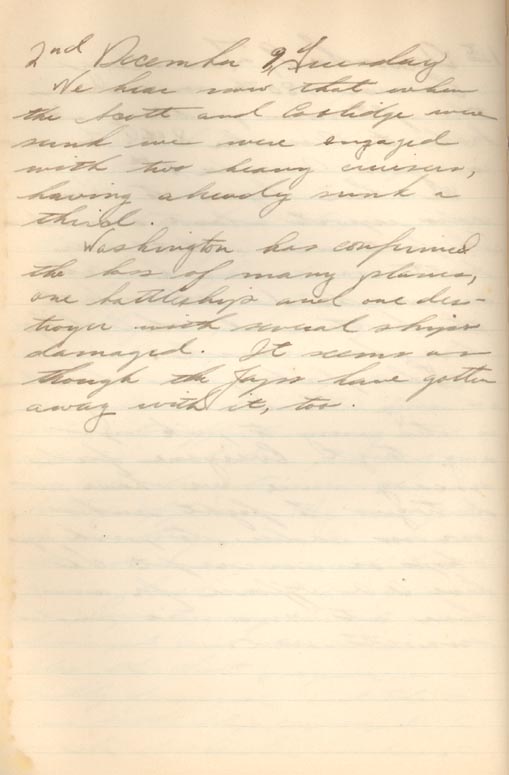 2nd December 9, Tuesday
We hear now that when
the Scott and Coolidge were
sunk we were engaged
with two heavy cruisers,
having already sunk a
third.
Washington has confirmed
the loss of many planes,
one battleship and one des-
troyer with several ships
damaged. It seems as
though the Japs have gotten
away with it, too.